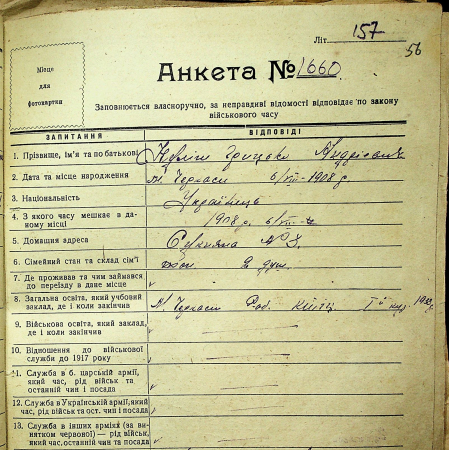 Літ. 157
56
Місце
для
фотокартки
Анкета № 1660
Заповнюється власноручно, за неправдиві відомості відповідає по закону
військового часу
ЗАПИТАННЯ
ВІДПОВІДІ
1. Прізвище, ім'я та по батькові
Грицько
2. Дата та місце народження
м. Черкаси 6/VIII-1908 р.
3. Національність
Українець
4. З якого часу мешкає в да-
ному місці
1908 р. 6/VIII
5. Домашня адреса
6. Сімейний стан та склад сім'ї
2 душ.
7. Де проживав та чим займався
до переїзду в дане місце
8. Загальна освіта, який учбовий
заклад, де і коли закінчив
м. Черкаси Роб.
9. Військова освіта, який заклад,
де і коли закінчив
10. Відношення до військової
служби до 1917 року
11. Служба в б. царській армії,
який час, рід військ та
останній чин і посада
12. Служба в Українській армії, який
час, рід військ та ост. чин і посада
13. Служба в інших арміях (за ви-
нятком червоної) — рід військ,
який час, останній чин та посада